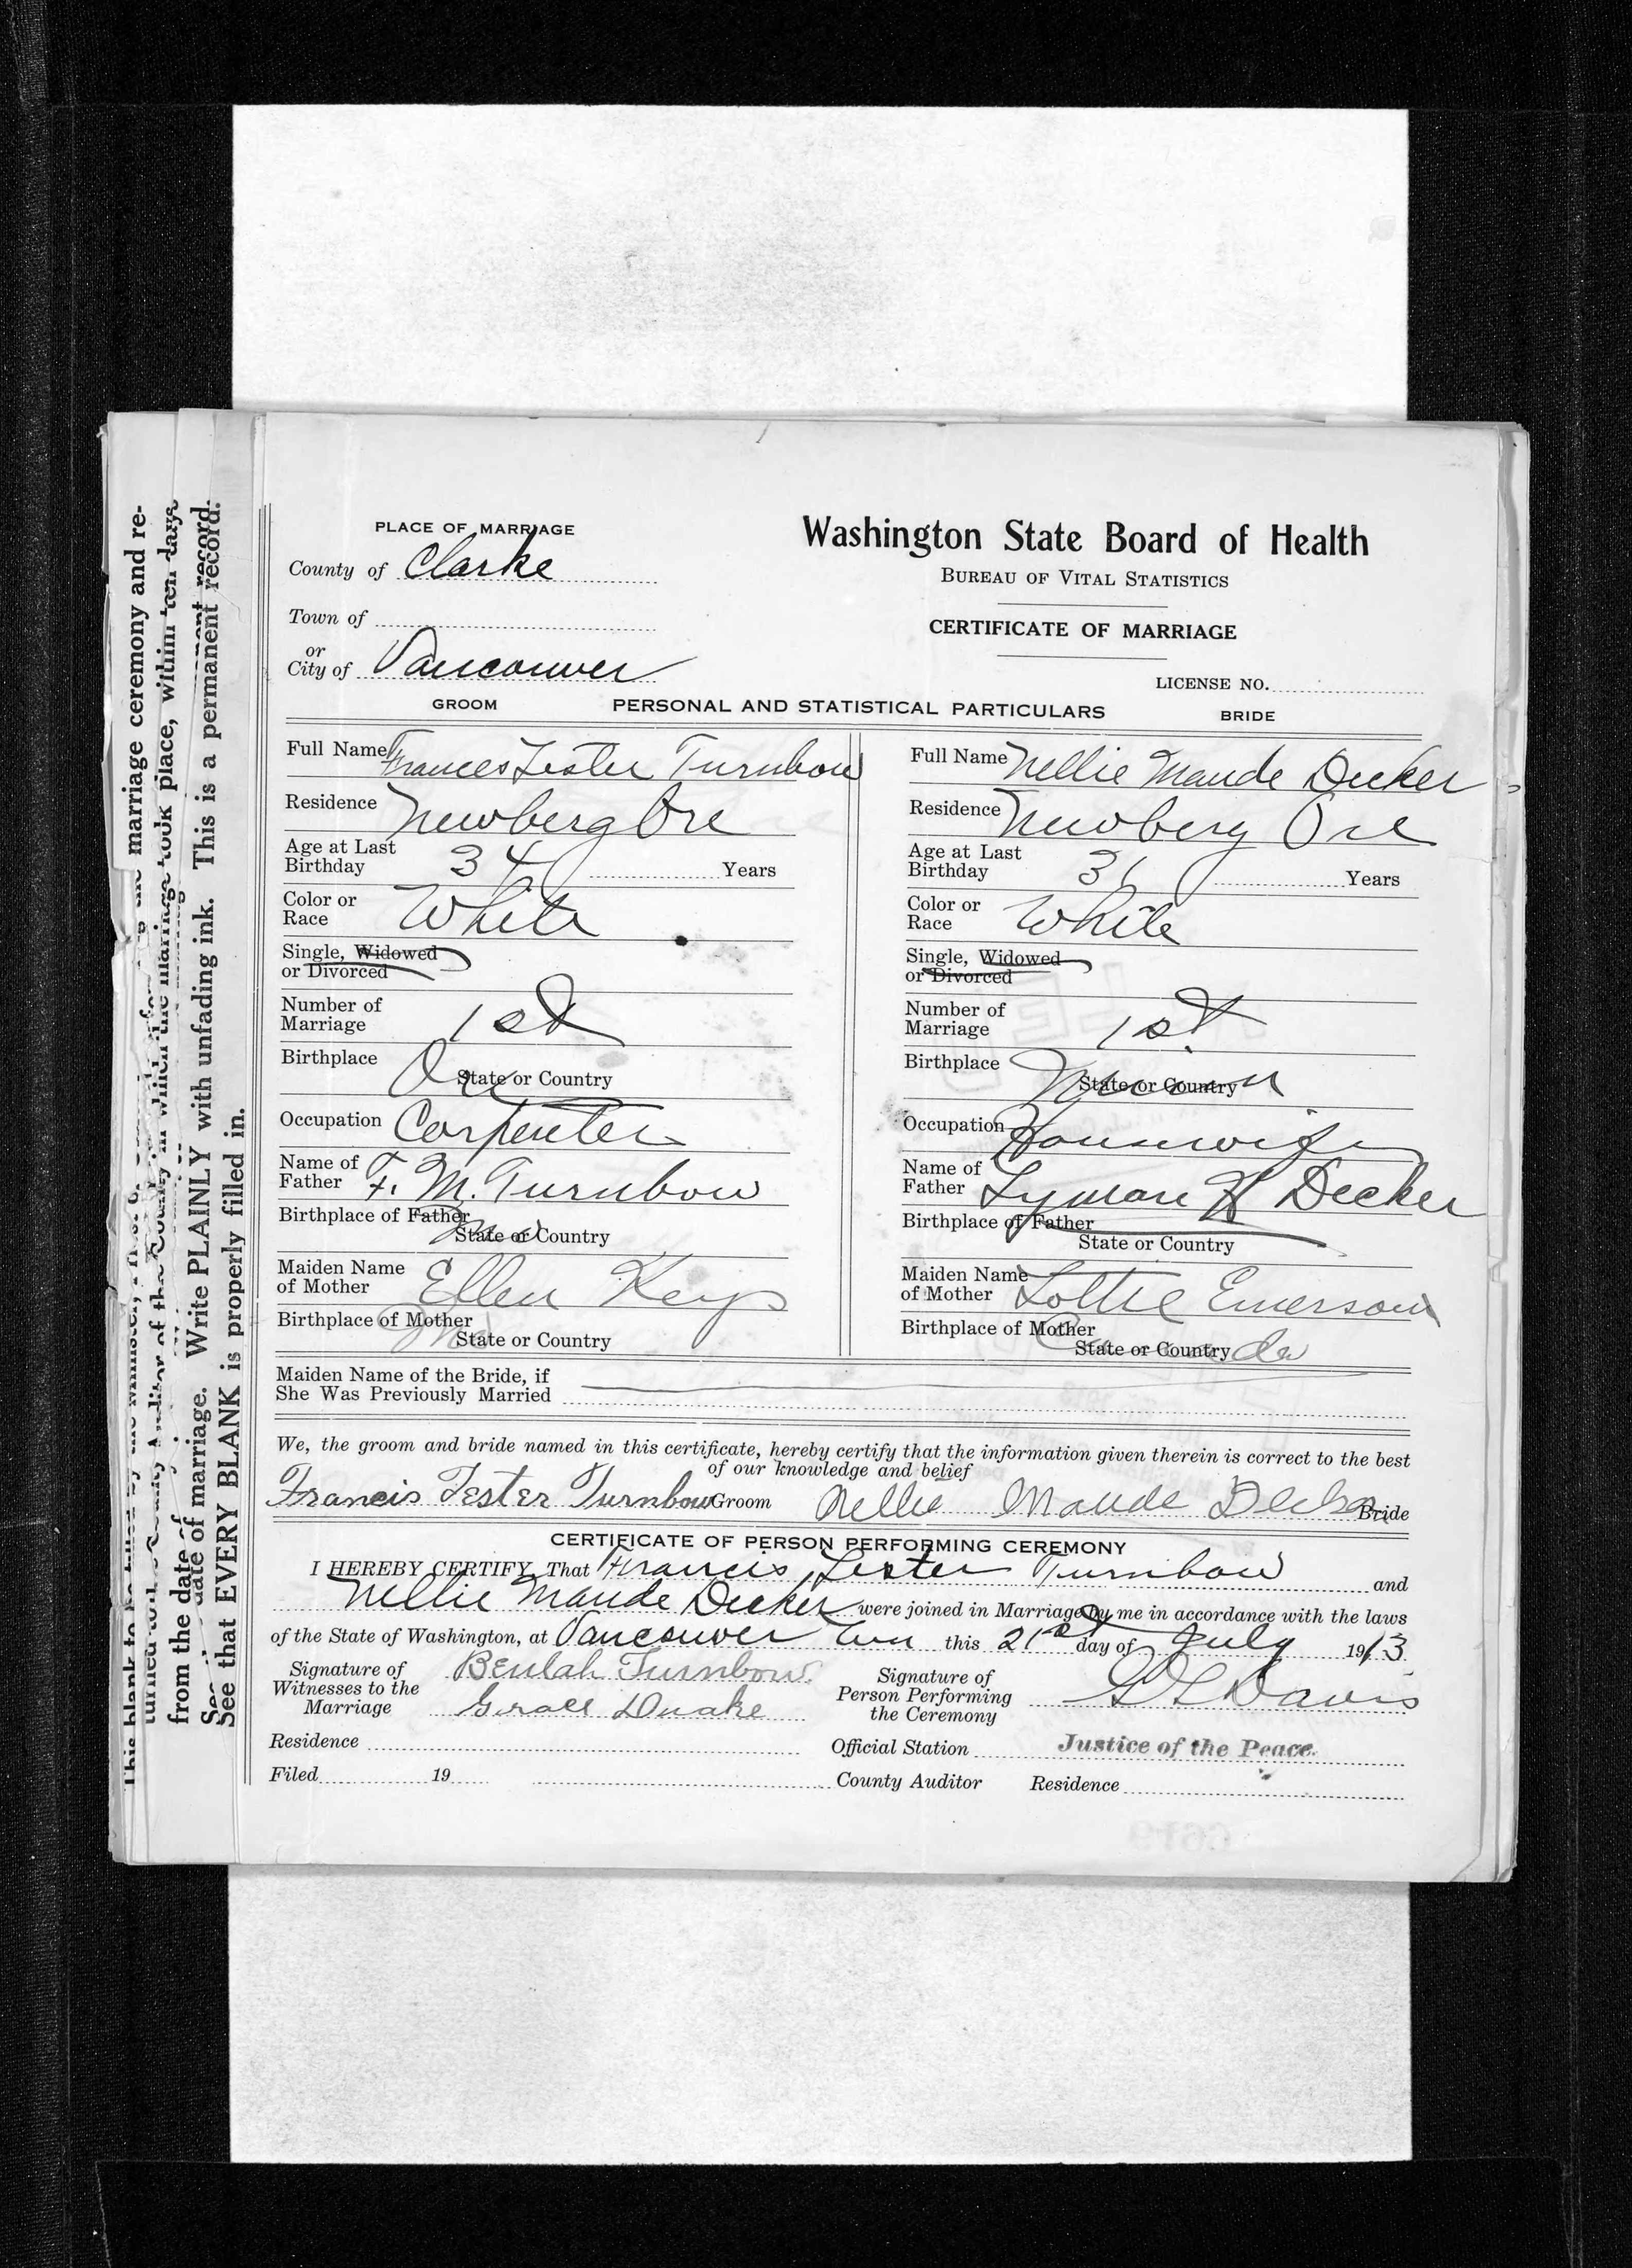 PLACE OF MARRIAGE
County of Clarke
Town of
or
City of Vancouver
Washington State Board of Health
BUREAU OF VITAL STATISTICS
CERTIFICATE OF MARRIAGE
LICENSE NO.
GROOM PERSONAL AND STATISTICAL PARTICULARS BRIDE
Full Name Frances Lester Turnbow
Residence Newberg Ore
Age at Last
Birthday 34 Years
Color or
Race White
Single, Widowed
or Divorced
Number of
Marriage 1st
Birthplace Ore
State or Country
Occupation Carpenter
Name of
Father F. M. Turnbow
Birthplace of Father
State or Country
Maiden Name
of Mother Ellen Keys
Birthplace of Mother
State or Country
Full Name Nellie Maude Decker
Residence Newberg Ore
Age at Last
Birthday 31 Years
Color or
Race White
Single, Widowed
or Divorced
Number of
Marriage 1st
Birthplace
State or Country
Occupation Housewife
Name of
Father Lyman H Decker
Birthplace of Father
State or Country
Maiden Name
of Mother Lottie Emerson
Birthplace of Mother Canada
State or Country
Maiden Name of the Bride, if
She Was Previously Married
We, the groom and bride named in this certificate, hereby certify that the information given therein is correct to the best
of our knowledge and belief
Francis Lester Turnbow Groom Nellie Maude Decker Bride
CERTIFICATE OF PERSON PERFORMING CEREMONY
I HEREBY CERTIFY, That Francis Lester Turnbow and
Nellie Maude Decker were joined in Marriage by me in accordance with the laws
of the State of Washington, at Vancouver this 21st day of July 1913
Signature of
Witnesses to the
Marriage
Beulah Turnbow
Grace Drake
Signature of
Person Performing
the Ceremony
Davis
Residence
Official Station Justice of the Peace.
Filed 19 County Auditor Residence
marriage ceremony and re-
place, within ten days
from the date of
date of marriage. Write PLAINLY with unfading ink. This is a permanent record.
See that EVERY BLANK is properly filled in.